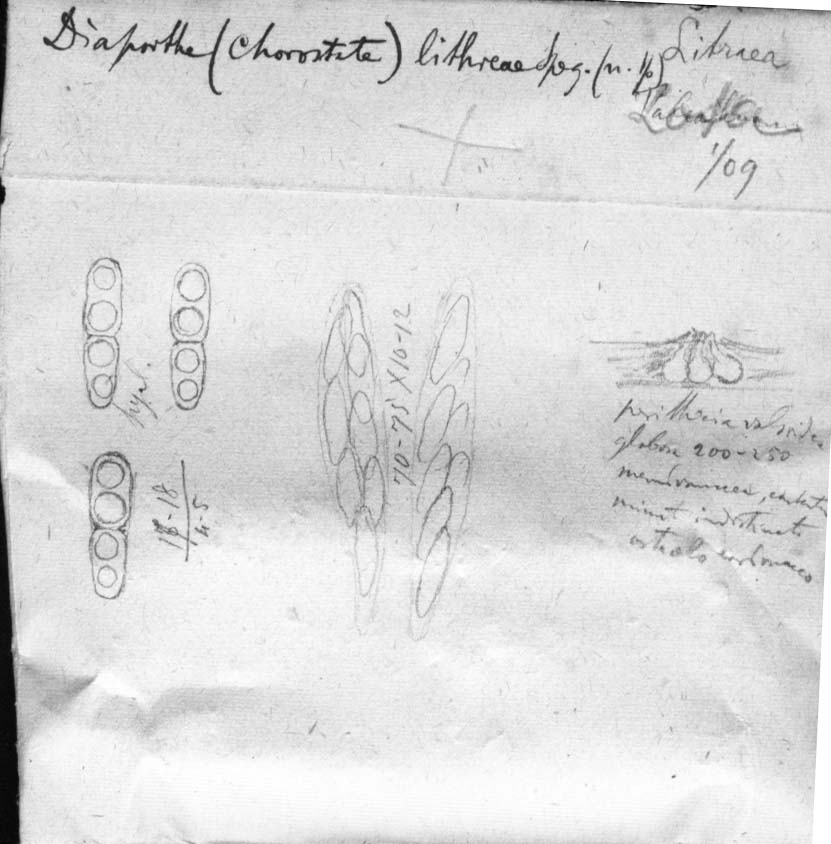 Diaporthe (Chorostate) lithreae Speg. (n. sp)
Lithraea
1/09
hyal.
70-75 X 10-12
18-18
4-5
perithecia valsoidea
globosa 200-250
membranacea, contextu
minut indistincto
ostiolo carbonaceo